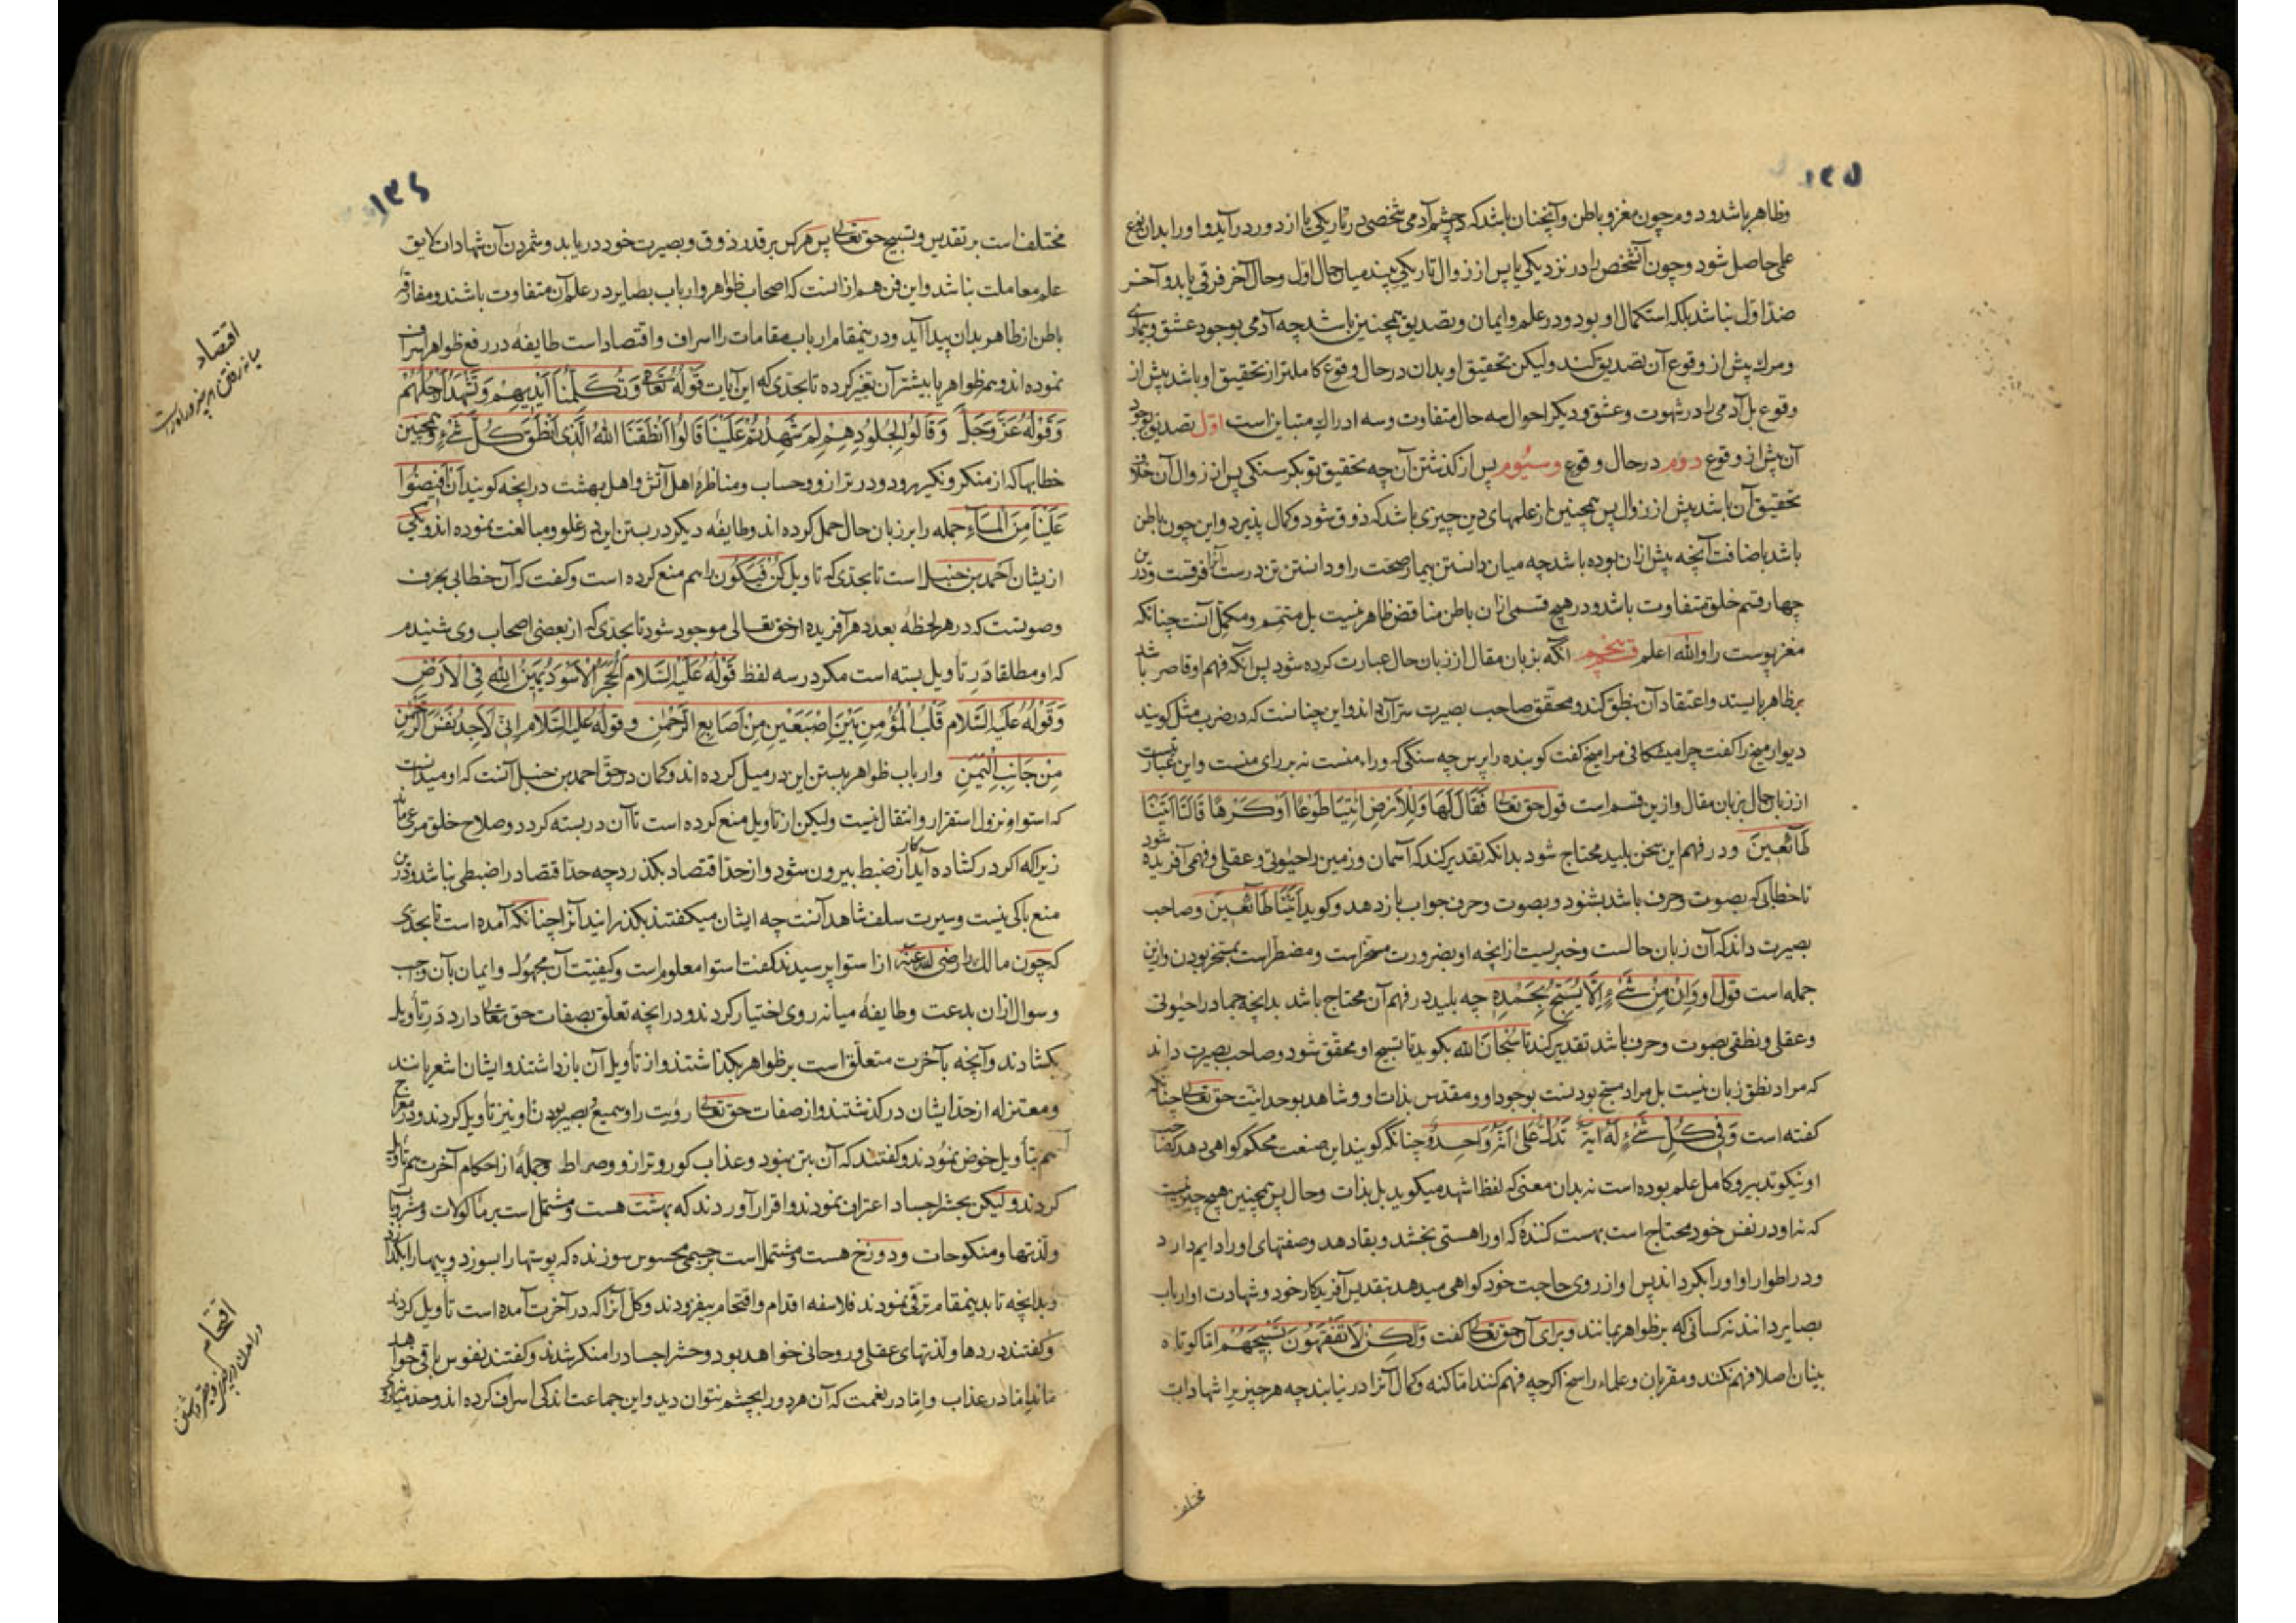 ۱۳۵
وظاهر باشد و دوم چون مغز و باطن و آنچنان باشد که در چشم آدمی شخصی در تاریکی یا از دور در آید و او را بدان نوع
علمی حاصل شود و چون آن شخص را در نزدیکی یا پس از زوال تاریکی بیند میان حال اول و حال آخر فرقی یابد و آخر
ضد اول نباشد بلکه استکمال او بود و در علم و ایمان و تصدیق همچنین باشد چه آدمی بوجود عشق و بیماری
و مرک پیش از وقوع آن تصدیق کند ولیکن تحقیق او بدان در حال وقوع کاملتر از تحقیق او باشد پیش از
وقوع بل آدمی را در شهوت و عشق و دیکر احوال سه حال متفاوت و سه ادراک متباین است اول تصدیق بوجود
آن پیش از وقوع دوم در حال وقوع وسیوم پس از کذشتن آن چه تحقیق تو بکرسنکی پس از زوال آن خلاف
تحقیق آن باشد پیش از زوال پس همچنین از علمهای دین چیزی باشد که ذوق شود و کمال پذیرد و این چون باطن
باشد باضافت آنچه پیش از ان بوده باشد چه میان دانستن بیمار صحت را و دانستن تن درست آنرا فرقست و درین
چهار قسم خلق متفاوت باشد و در هیچ قسمی ازان باطن مناقض ظاهر نیست بل متمم و مکمل آنست چنانکه
مغز پوست را والله اعلم قسم پنجم آنکه بزبان مقال از زبان حال عبارت کرده شود پس آنکه فهم او قاصر باشد
بر ظاهر بایستد و اعتقاد آن بنطق کند و محقق صاحب بصیرت سر آن داند و این چنانست که در ضرب مثل کویند
دیوار میخ را کفت چرا میشکافی مرا میخ کفت کوبنده را بپرس چه سنکی که وراء منست نه برای منست و این عبارتیست
از زبان حال بزبان مقال و ازین قسم است قول حق تعالی فَقَالَ لَهَا وَلِلْأَرْضِ ائْتِيَا طَوْعًا أَوْ كَرْهًا قَالَتَا أَتَيْنَا
طَائِعِينَ و در فهم این سخن بلید محتاج شود بدانکه تقدیر کند که آسمان و زمین را حیوتی و عقلی و فهمی آفریده شود
تا خطابی که بصوت و حرف باشد بشنود و بصوت و حرف جواب باز دهد و کوید أَتَيْنَا طَائِعِينَ و صاحب
بصیرت داند که آن زبان حالست و خبریست از انچه او بضرورت مسخر است و مضطر است بمسخر بودن وازین
جمله است قول او وَإِنْ مِنْ شَيْءٍ إِلَّا يُسَبِّحُ بِحَمْدِهِ چه بلید در فهم آن محتاج باشد بدانچه جماد را حیوتی
و عقلی و نطقی بصوت و حرف باشد تقدیر کند تا سُبْحَانَ الله بکوید تا تسبیح او محقق شود و صاحب بصیرت داند
که مراد نطق زبان نیست بل مراد مسبح بودنست بوجود او و مقدس بذات او و شاهد بوحدانیت حق تعالی چنانکه
کفته است وَفِي كُلِّ شَيْءٍ لَهُ آيَةٌ تَدُلُّ عَلَى أَنَّهُ وَاحِدٌ و چنانکه کویند این صنعت محکم کواهی میدهد که صاحب
او نیکو تدبیر و کامل علم بوده است نه بدان معنی که لفظ اشهد میکوید بل بذات و حال پس همچنین هیچ چیز نیست
که نه او در نفس خود محتاج است بهست کنندهٔ که او را هستی بخشد و بقا دهد و صفتهای او را دایم دارد
و در اطوار او او را بکرداند پس او از روی حاجت خود کواهی میدهد بتقدیس آفریدکار خود و شهادت او ارباب
بصایر دانند نه کسانی که بر ظواهر بمانند و برای آن حق تعالی کفت وَلَكِنْ لَا تَفْقَهُونَ تَسْبِيحَهُمْ اما کوتاه
بینان اصلا فهم نکنند و مقربان و علماء راسخ اکرچه فهم کنند اما کنه و کمال آنرا در نیابند چه هر چیز یرا شهادات
مختلف
۱۳۶
مختلف است بر تقدیس و تسبیح حق تعالی پس هر کس بر قدر ذوق و بصیرت خود دریابد و شمردن آن شهادات لایق
علم معاملت نباشد و این فن هم ازانست که اصحاب ظواهر و ارباب بصایر در علم آن متفاوت باشند و مفارقهٔ
باطن از ظاهر بدان پیدا آید و درینمقام ارباب مقامات را اسراف و اقتصاد است طایفهٔ در رفع ظواهر اسراف
نموده اند و همه ظواهر یا بیشتر آن تغیر کرده تا بحدی که این آیات قَوْلُهُ تَعَالَى وَتُكَلِّمُنَا أَيْدِيهِمْ وَتَشْهَدُ أَرْجُلُهُمْ
وَقَوْلُهُ عَزَّوَجَلَّ وَقَالُوا لِجُلُودِهِمْ لِمَ شَهِدْتُمْ عَلَيْنَا قَالُوا أَنْطَقَنَا اللهُ الَّذِي أَنْطَقَ كُلَّ شَيْءٍ و همچنین
خطابها که از منکر و نکیر رود و در ترازو و حساب و مناظرهٔ اهل آتش و اهل بهشت در انچه کویند أَنْ أَفِيضُوا
عَلَيْنَا مِنَ الْمَاءِ جمله را بر زبان حال حمل کرده اند و طایفه دیکر در بستن این در غلو و مبالغت نموده اند و یکی
ازیشان احمد بن حنبل است تا بحدی که تاویل کُنْ فَيَكُونُ را هم منع کرده است و کفت که آن خطابی بحرف
و صوتست که در هر لحظهٔ بعدد هر آفریده از حق تعالی موجود شود تا بحدی که از بعضی اصحاب وی شنیدم
که او مطلقا در تأویل بسته است مکر در سه لفظ قَوْلُهُ عَلَيْهِ السَّلَام الْحَجَرُ الْأَسْوَدُ يَمِينُ اللهِ فِي الْأَرْضِ
وَقَوْلُهُ عَلَيْهِ السَّلَام قَلْبُ الْمُؤْمِنِ بَيْنَ إِصْبَعَيْنِ مِنْ أَصَابِعِ الرَّحْمٰنِ وقوله علیه السلام إِنِّي لَأَجِدُ نَفَسَ الرَّحْمٰنِ
مِنْ جَانِبِ الْيَمَنِ و ارباب ظواهر ببستن این در میل کرده اند و کمان در حق احمد بن حنبل آنست که او میدانست
که استوا و نزول استقرار و انتقال نیست ولیکن از تاویل منع کرده است تا آن در بسته کردد و صلاح خلق مرعی ماند
زیرا که اکر در کشاده آید کار از ضبط بیرون شود و از حد اقتصاد بکذرد چه حد اقتصاد را ضبطی نباشد و درین
منع باکی نیست و سیرت سلف شاهد آنست چه ایشان میکفتند بکذرانید آنرا چنانکه آمده است تا بحدی
که چون مالک را رضی الله عنه از استوا پرسیدند کفت استوا معلوم است و کیفیت آن مجهول و ایمان بآن واجب
و سوال ازان بدعت و طایفهٔ میانه روی اختیار کردند و در انچه تعلق بصفات حق تعالی دارد در تأویل
بکشادند و آنچه بآخرت متعلق است بر ظواهر بکذاشتند و از تأویل آن بازداشتند و ایشان اشعریانند
و معتزله از حد ایشان در کذشتند و از صفات حق تعالی رویت را و سمیع و بصیر بودن او نیز تأویل کردند و در معراج
هم بتأویل خوض نمودند و کفتند که آن بتن نبود و عذاب کور و ترازو و صراط و جملهٔ از احکام آخرت هم تأویل
کردند ولیکن بحشر اجساد اعتراف نمودند و اقرار آوردند که بهشت هست و مشتمل است بر ماکولات و مشروبات
و لذتها و منکوحات و دوزخ هست و مشتمل است بر جسمی محسوس سوزنده که پوستها را بسوزد و پیهها را بکدازد
و بدانچه تا بدینمقام ترقی نمودند فلاسفه اقدام و اقتحام بیفزودند و کل آنرا که در آخرت آمده است تأویل کردند
و کفتند دردها و لذتهای عقلی و روحانی خواهد بود و حشر اجساد را منکر شدند و کفتند نفوس باقی خواهد
ماند اما در عذاب و اما در نعمت که آن هر دو را بچشم نتوان دید و این جماعت اندکی اسراف کرده اند و حد میانه روی
اقتصاد
میانه رفتن
اقتحام